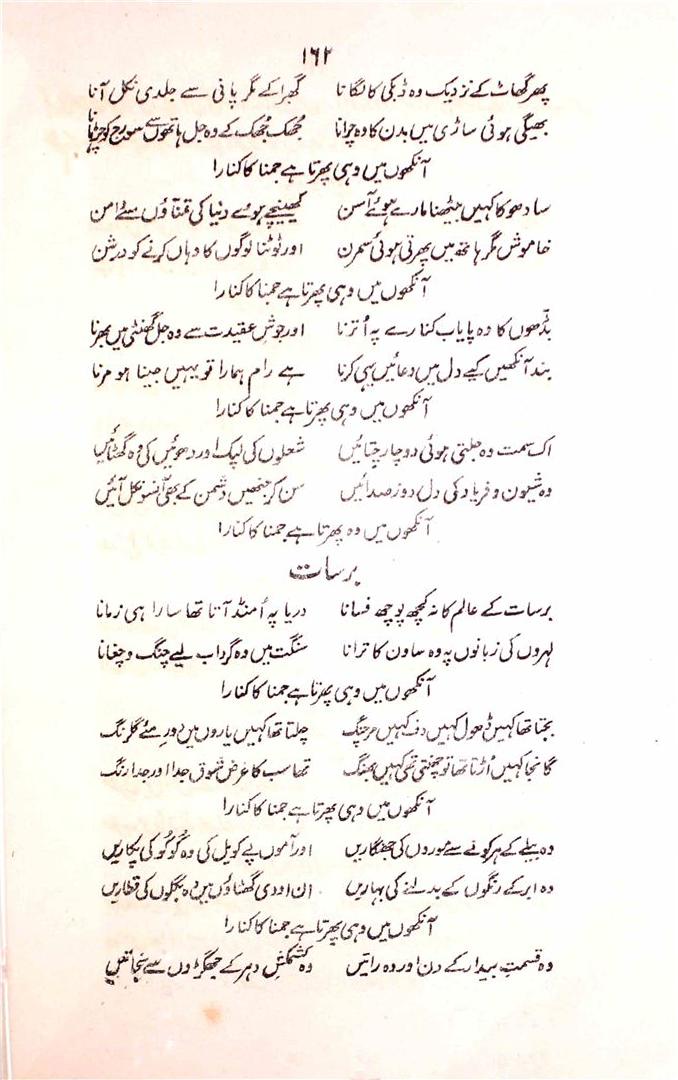 ۱۶۲
پھر گھاٹ کے نزدیک وہ ڈبکی کا لگانا گھبرا کے مگر پانی سے جلدی نکل آنا
بھیگی ہوئی ساڑی میں بدن کا وہ چرانا جھک جھک کے وہ جل ہاتھوں سے سورج کو چڑھانا
آنکھوں میں وہی پھرتا ہے جمنا کا کنارا
سادھو کا کہیں بیٹھنا مارے ہوئے آسن کھینچے ہوئے دنیا کی تمناؤں سے دامن
خاموش مگر ہاتھ میں پھرتی ہوئی سمرن اور ٹوٹنا لوگوں کا وہاں کرنے کو درشن
آنکھوں میں وہی پھرتا ہے جمنا کا کنارا
بڈھوں کا وہ پایاب کنارے پہ اُترنا اور جوش عقیدت سے وہ جل گھنٹی میں بھرنا
بند آنکھیں کیے دل میں دعائیں یہی کرنا ہے رام ہمارا تو یہیں جینا ہو مرنا
آنکھوں میں وہی پھرتا ہے جمنا کا کنارا
اک سمت وہ جلتی ہوئی دو چار چتائیں شعلوں کی لپک اور دھوئیں کی وہ گھٹائیں
وہ شیون و فریاد کی دل دوز صدائیں سن کر جنھیں دشمن کے بھی آنسو نکل آئیں
آنکھوں میں وہ پھرتا ہے جمنا کا کنارا
برسات
برسات کے عالم کا نہ کچھ پوچھ فسانا دریا پہ اُمنڈ آتا تھا سارا ہی زمانا
لہروں کی زبانوں پہ وہ ساون کا ترانا سنگت میں وہ گرداب لیے چنگ و چغانا
آنکھوں میں وہی پھرتا ہے جمنا کا کنارا
بجتا تھا کہیں ڈھول کہیں دف کہیں مرچنگ چلتا تھا کہیں یاروں میں دور مئے گلرنگ
گانجا کہیں اڑتا تھا تو چھنتی تھی کہیں بھنگ تھا سب کا غرض شوق جدا اور جدا رنگ
آنکھوں میں وہی پھرتا ہے جمنا کا کنارا
وہ بیلے کے ہر کونے سے موروں کی جھنگاریں اور آموں پے کویل کی وہ کُو کُو کی پکاریں
وہ ابر کے رنگوں کے بدلنے کی بہاریں ان اودی گھٹاؤں میں وہ بگلوں کی قطاریں
آنکھوں میں وہی پھرتا ہے جمنا کا کنارا
وہ قسمت بیدار کے دن اور وہ راتیں وہ کشمکش دہر کے جھگڑوں سے نجاتیں